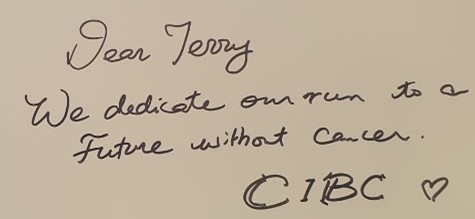 Dear Terry
We dedicate our run to a
Future without cancer.
CIBC ♡